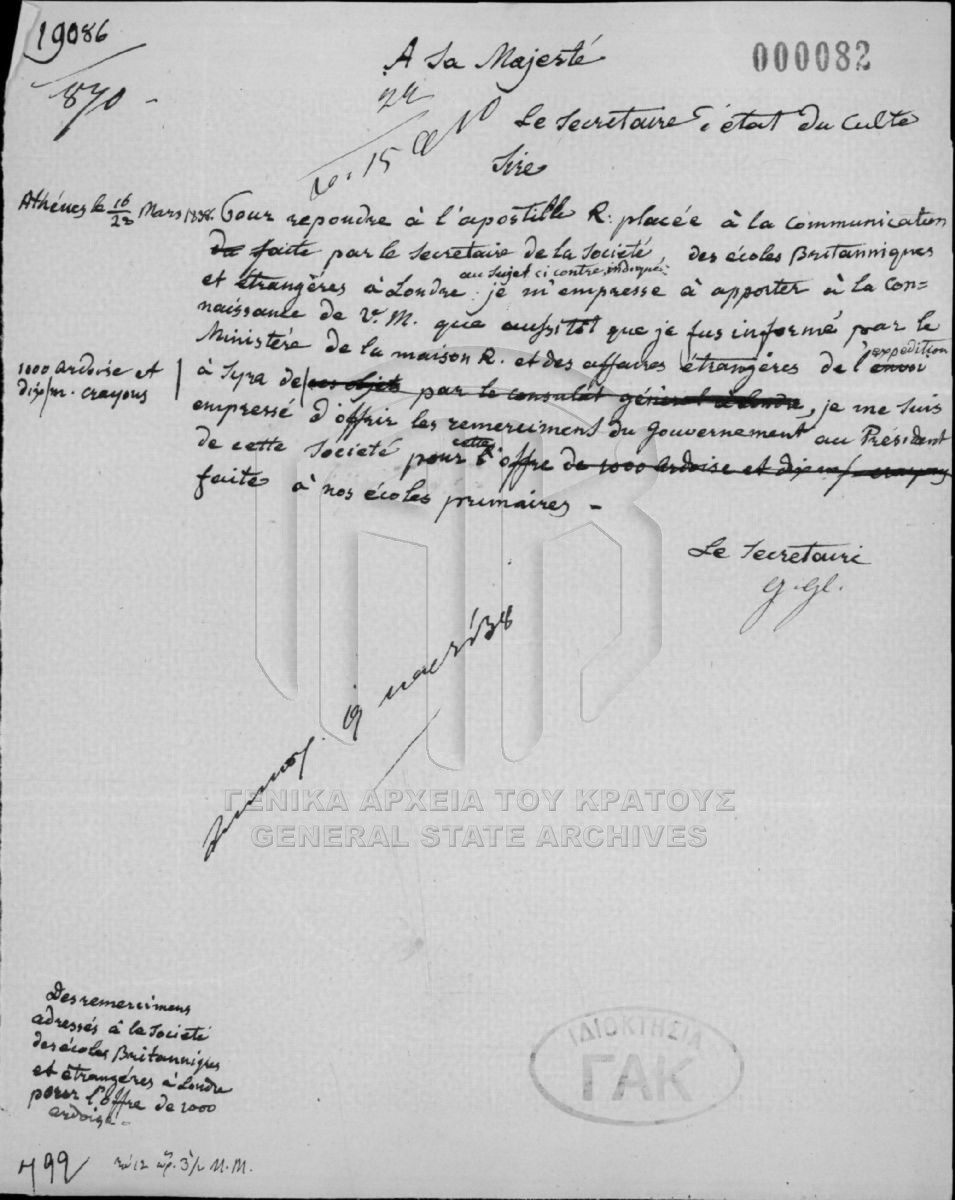 19086
870 -
000082
A Sa Majesté
22
15
Le Secretaire d'état du Culte
Sire
Athénes le 16/28 Mars 1838.
Pour repondre à l'apostille R. placée à la communication
du faite par le Secretaire de la Societé, des écoles Britanniques
et étrangères à Londre au sujet ci contre indiqué: je m'empresse à apporter à la con=
naissance de V. M. que aussitôt que je fus informé par le
Ministére de la maison R. et des affaires étrangères de l'envoi expedition
1000 ardoise et
dix/m. crayons
à Syra de ces objets par le consulat général à Londre, je me suis
empressé d'offrir les remercimens du Gouvernement au Président
de cette Societé pour cette l'offre de 1000 ardoise et dix m/ crayons
faite à nos écoles primaires -
Le Secretaire
G. Gl.
19 38
ΓΕΝΙΚΑ ΑΡΧΕΙΑ ΤΟΥ ΚΡΑΤΟΥΣ
GENERAL STATE ARCHIVES
Des remercimens
adressés à la Societé
des écoles Britanniques
et étrangéres à Londre
pour l'offre de 1000
ardoise -
ΙΔΙΟΚΤΗΣΙΑ
ΓΑΚ
499
M. M.